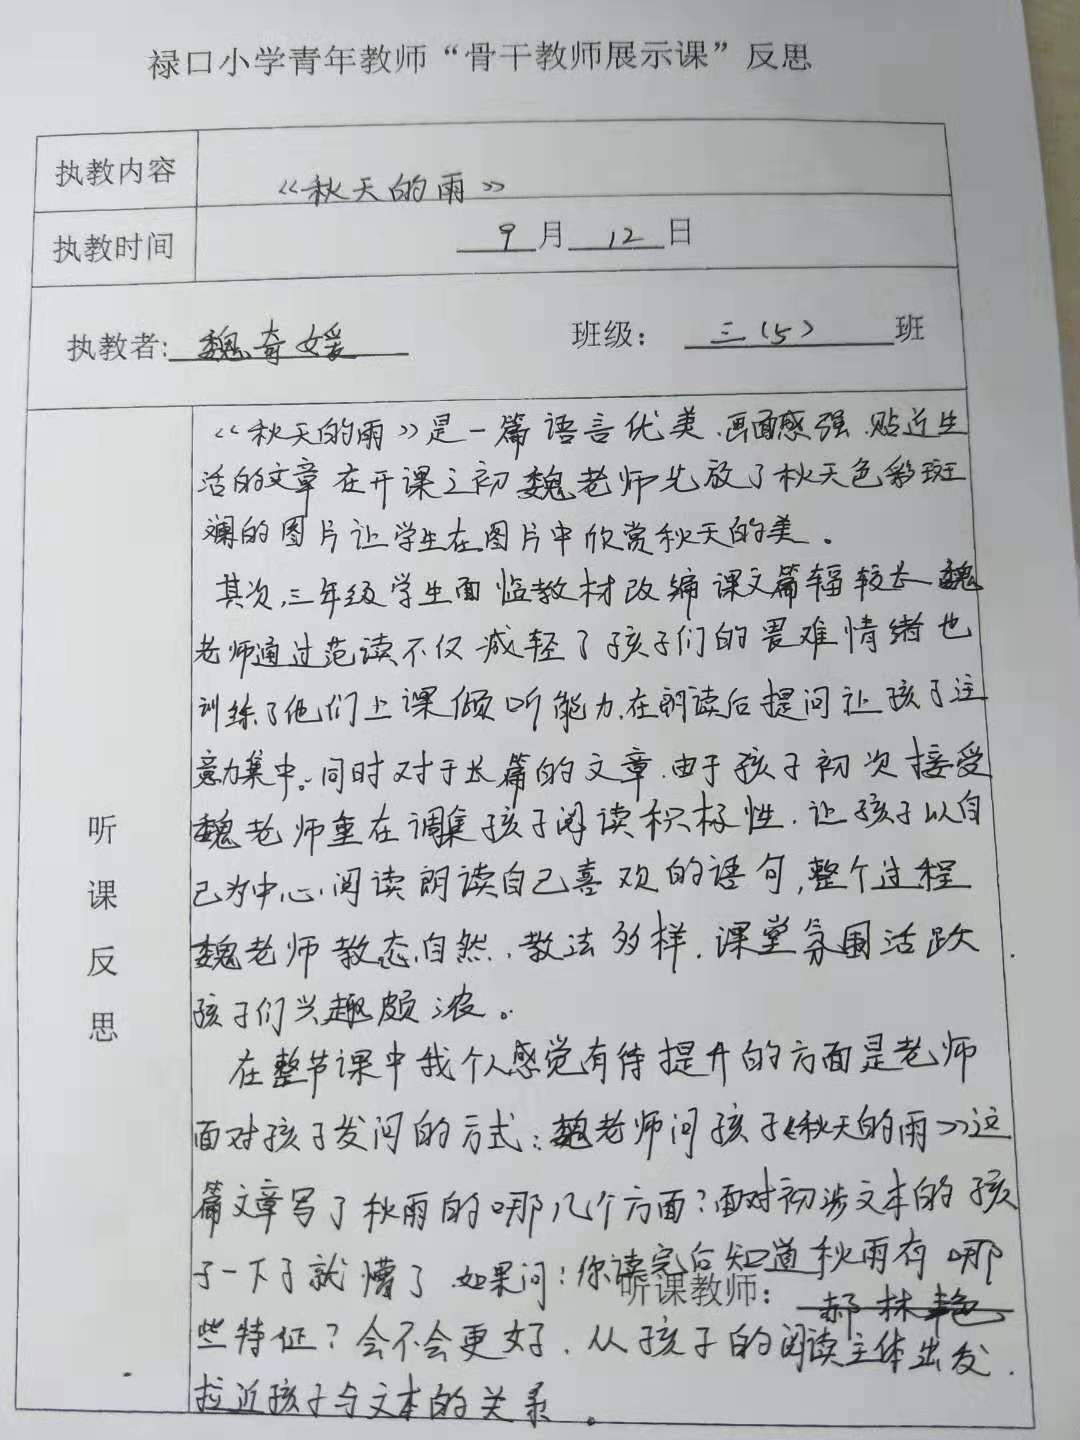 禄口小学青年教师“骨干教师展示课”反思
执教内容
《秋天的雨》
执教时间
9月12日
执教者:魏奇媛
班级：三(5)班
听课反思
《秋天的雨》是一篇语言优美、画面感强、贴近生
活的文章在开课之初魏老师先放了秋天色彩斑
斓的图片让学生在图片中欣赏秋天的美。
其次,三年级学生面临教材改编课文篇辐较长魏
老师通过范读不仅减轻了孩子们的畏难情绪也
训练了他们上课倾听能力.在朗读后提问让孩子注
意力集中。同时对于长篇的文章.由于孩子初次接受
魏老师重在调集孩子阅读积极性.让孩子以自
己为中心.阅读朗读自己喜欢的语句,整个过程
魏老师教态自然、教法多样.课堂氛围活跃.
孩子们兴趣颇浓。
在整节课中我个人感觉有待提升的方面是老师
面对孩子发问的方式:魏老师问孩子《秋天的雨》这
篇文章写了秋雨的哪几个方面?面对初涉文本的孩
子一下子就懵了.如果问:你读完后知道秋雨有哪
听课教师：郝林艳
些特征?会不会更好.从孩子的阅读主体出发.
拉近孩子与文本的关系。